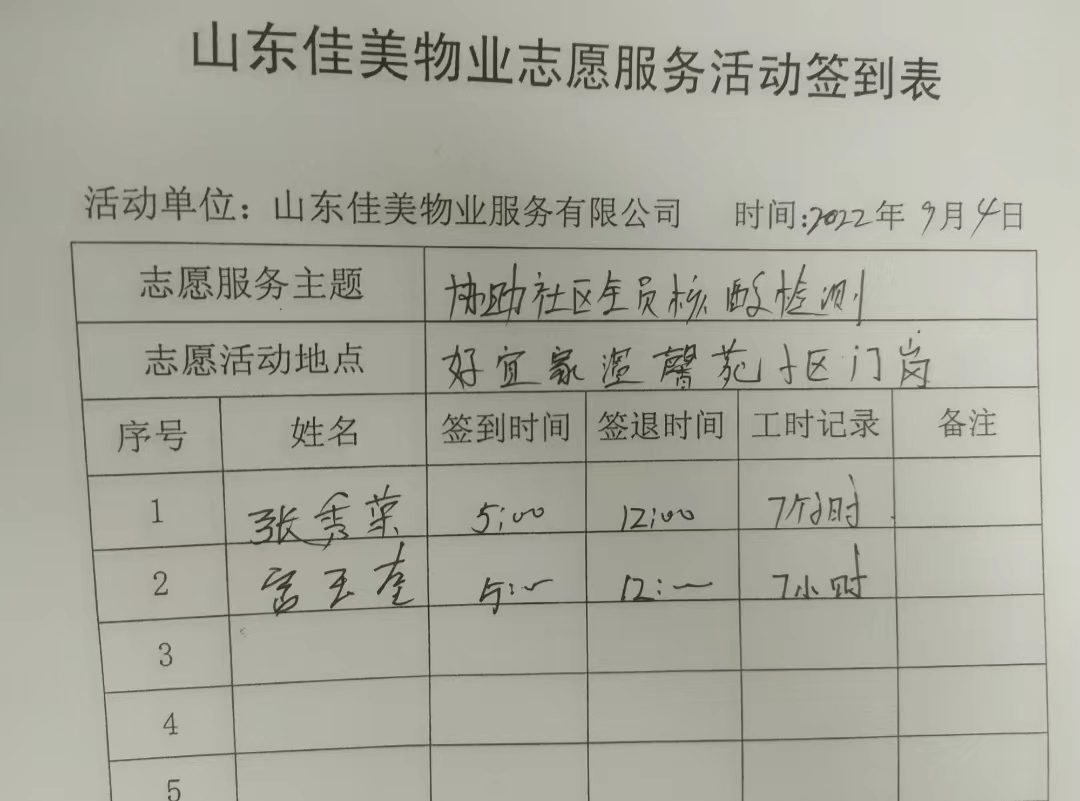 山东佳美物业志愿服务活动签到表
活动单位：山东佳美物业服务有限公司 时间:2022年9月4日
志愿服务主题 协助社区全员核酸检测
志愿活动地点 好宜家温馨苑小区门岗
序号 姓名 签到时间 签退时间 工时记录 备注
1 张秀菜 5:00 12:00 7个小时
2 玉奎 5:00 12:00 7小时
3
4
5